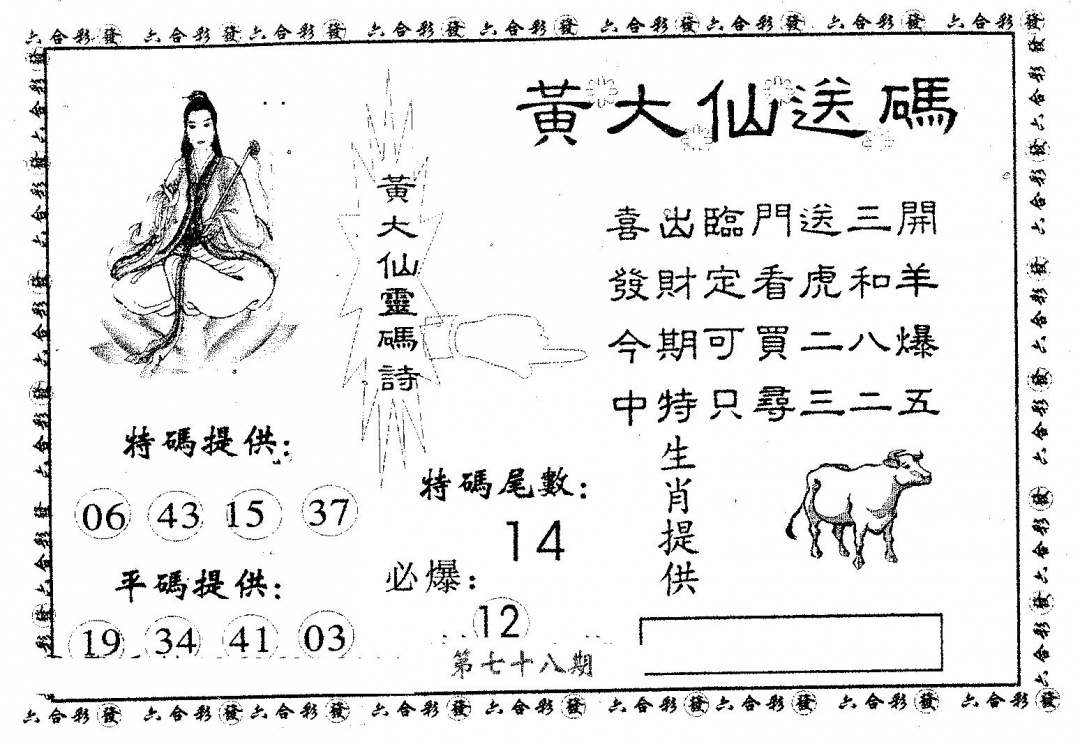 六合彩發 六合彩發六合彩發 六合彩發六合彩發 六合彩發六合彩發 六合彩發 六合彩發
黃大仙送碼
黃大仙靈碼詩
喜出臨門送三開
發財定看虎和羊
今期可買二八爆
中特只尋三二五
特碼提供:
06 43 15 37
特碼尾數:
14
生肖提供
平碼提供:
19 34 41 03
必爆:
12
第七十八期
六合彩發 六合彩發六合彩發 六合彩發六合彩發 六合彩發六合彩發 六合彩發 六合彩發